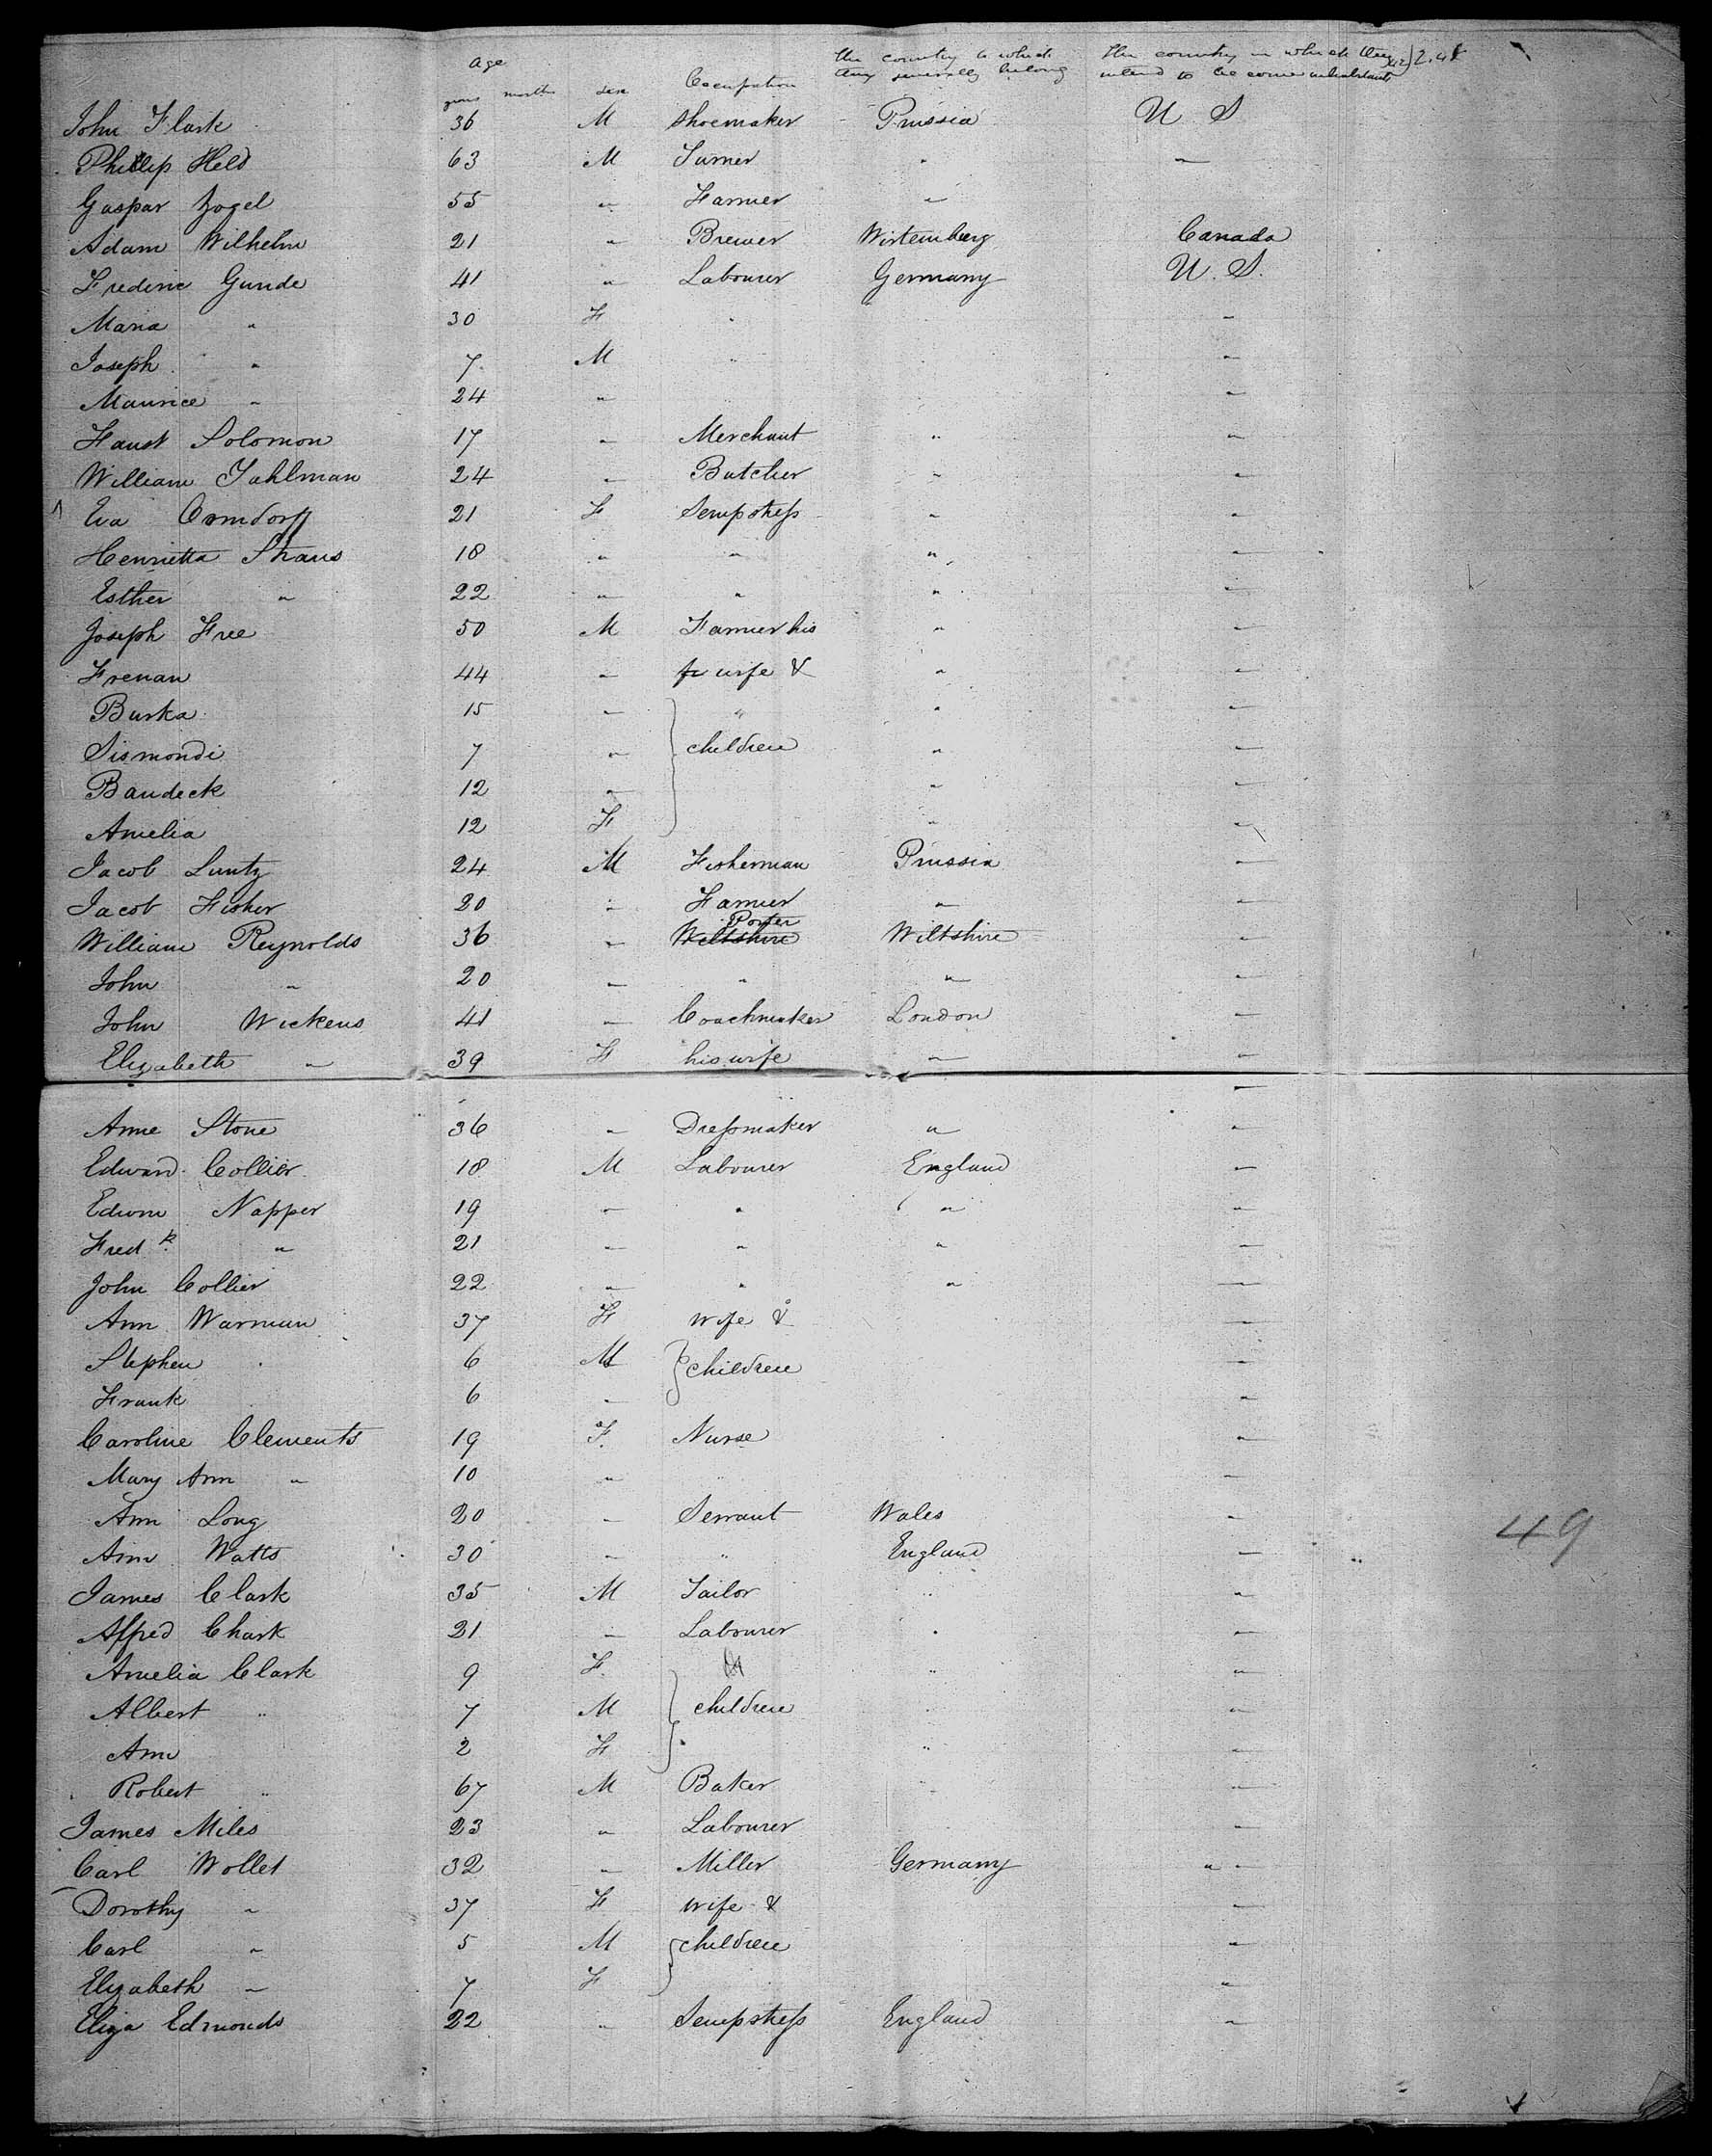 Age
years months sex Occupation the country to which they severally belong the country in which they intend to become inhabitants
John Flask 36 M Shoemaker Prussia U S
Phillip Held 63 M Turner " "
Gaspar Zogel 55 " Farmer "
Adam Wilhelm 21 " Brewer Wirtemberg Canada
Frederic Gunde 41 " Labourer Germany U. S.
Maria " 30 F " "
Joseph " 7 M " "
Maurice " 24 " "
Faust Solomon 17 " Merchant " "
William Tahlman 24 " Butcher " "
Eva Ormdorff 21 F Sempstress " "
Henrietta Straus 18 " " " "
Esther " 22 " " " "
Joseph Free 50 M Farmer his " "
Frenan 44 " wife & " "
Burka 15 " " " "
Sismondi 7 " children " "
Baudeck 12 " " "
Amelia 12 F " "
Jacob Luntz 24 M Fisherman Prussia "
Jacob Fisher 20 " Farmer " "
Porter
William Reynolds 36 " Wiltshire Wiltshire "
John " 20 " " " "
John Wickens 41 " Coachmaker London "
Elizabeth " 39 F his wife " "
Anne Stone 36 " Dressmaker " "
Edward Collier 18 M Labourer England "
Edwin Napper 19 " " " "
Fredk. " 21 " " " "
John Collier 22 " " " "
Ann Warman 37 F wife & "
Stephen 6 M children "
Frank 6 " "
Caroline Clements 19 F. Nurse "
Mary Ann " 10 " "
Ann Long 20 " Servant Wales "
49
Ann Watts 30 " " England "
James Clark 35 M Tailor " "
Alfred Chark 21 " Labourer " "
Amelia Clark 9 F. " "
Albert " 7 M children " "
Ann 2 F " "
Robert " 67 M Baker " "
James Miles 23 " Labourer "
Carl Wollet 32 " Miller Germany " "
Dorothy " 37 F wife & "
Carl " 5 M children "
Elizabeth " 7 F "
Eliza Edmonds 22 " Sempstress England "